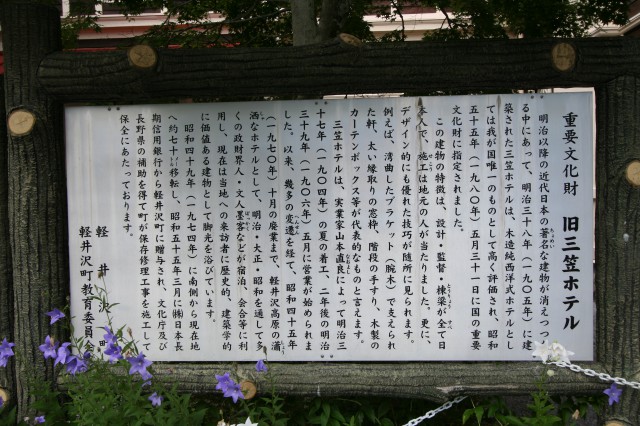 重要文化財　旧三笠ホテル
明治以降の近代日本の著名な建物が消えつつ
る中にあって、明治三十八年（一九〇五年）に建
築された三笠ホテルは、木造純西洋式ホテルとし
ては我が国唯一のものとして高く評価され、昭和
五十五年（一九八〇年）五月三十一日に国の重要
文化財に指定されました。
この建物の特徴は、設計・監督・棟梁が全て日
本人で、施工は地元の人が当たりました。更に、
デザイン的にも優れた技巧が随所に見られます。
例えば、湾曲したブラケット（腕木）で支えられ
た軒、太い縁取りの窓枠、階段の手すり、木製の
カーテンボックス等が代表的なものと言えます。
三笠ホテルは、実業家山本直良によって明治三
十七年（一九〇四年）の夏の着工、二年後の明治
三十九年（一九〇六年）五月に営業が始められま
した。以来、幾多の変遷を経て、昭和四十五年
（一九七〇年）十月の廃業まで、軽井沢高原の瀟
洒なホテルとして、明治・大正・昭和を通して多
くの政財界人・文人墨客などが宿泊、会合等に利
用し、現在は当地への来訪者に歴史的、建築学的
に価値ある建物として脚光を浴びています。
昭和四十九年（一九七四年）に南側から現在地
へ約七十m移転し、昭和五十五年三月に㈱日本長
期信用銀行から軽井沢町に贈与され、文化庁及び
長野県の補助を得て町が保存修理工事を施工して
保全にあたっております。
軽井沢町
軽井沢町教育委員会